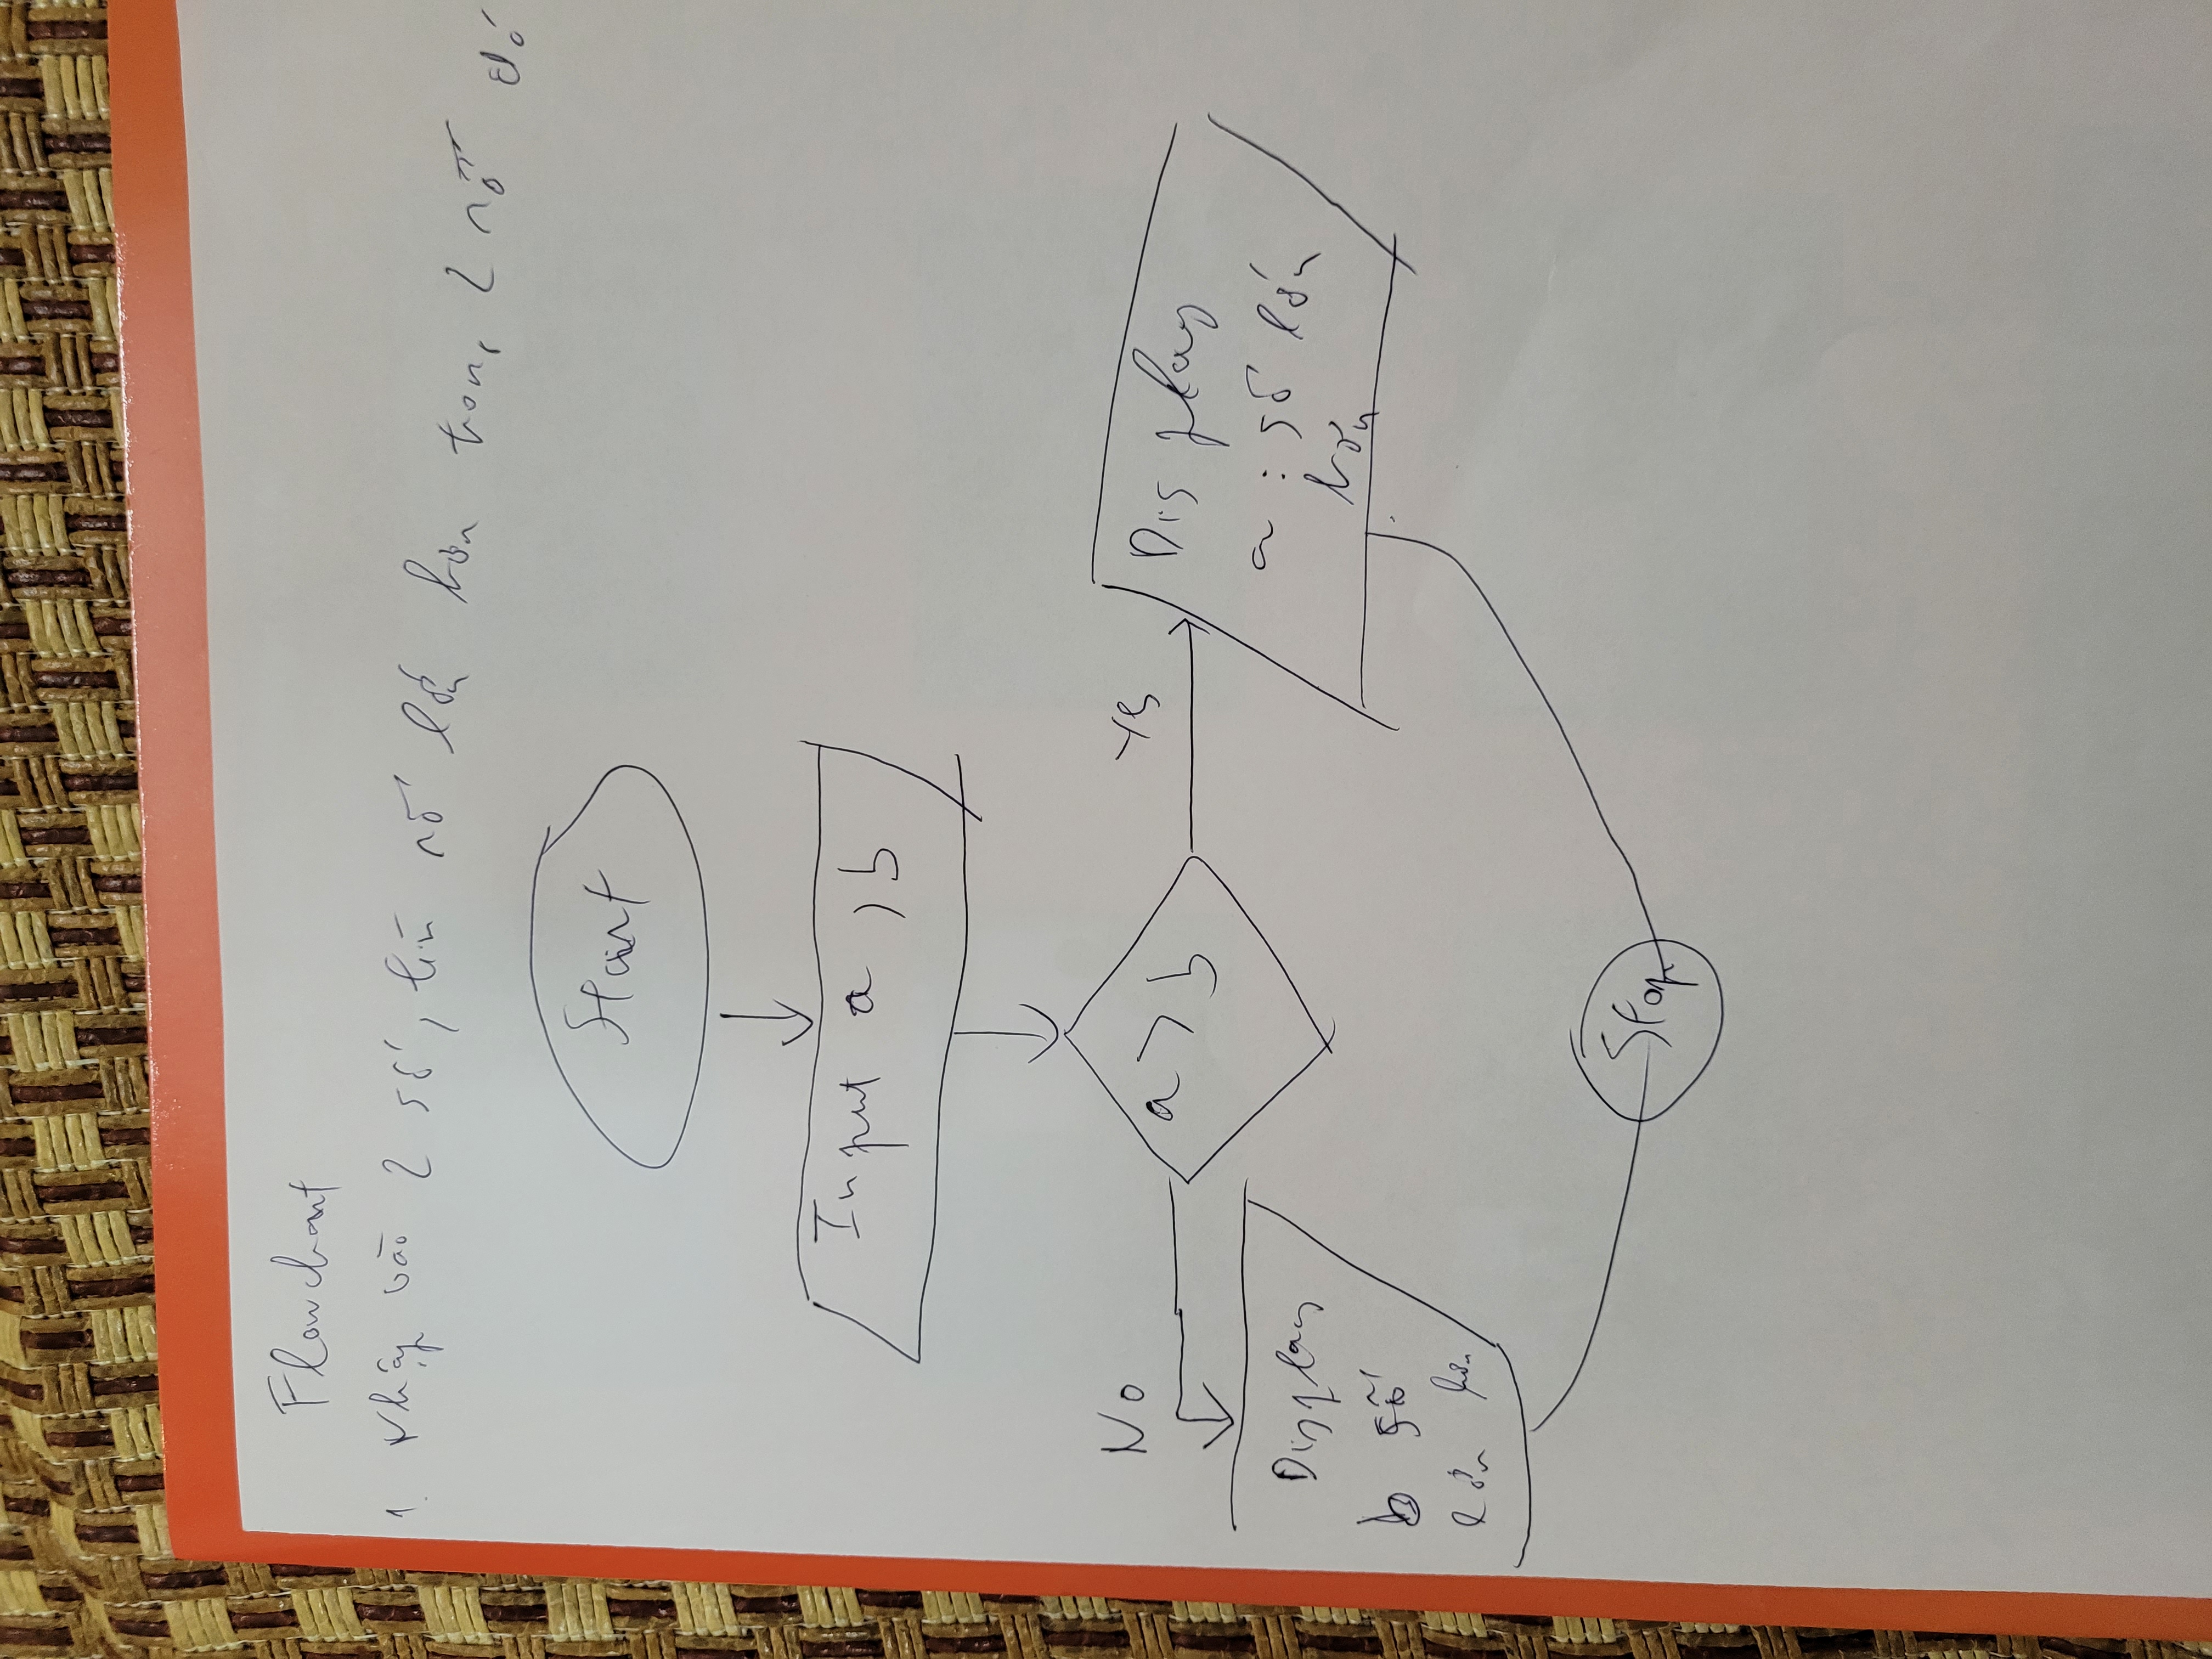 Flowchart
1. Nhập vào 2 số, tìm số lớn hơn trong 2 số đó
Start
Input a, b
a > b
No
Yes
Display
a : số lớn
hơn
Display
b số
lớn hơn
Stop